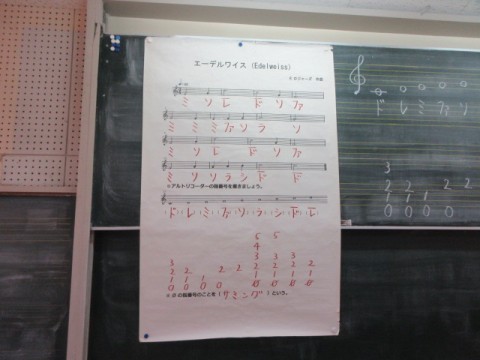 エーデルワイス (Edelweiss)
ミ ソ レ ド ソ ファ
ミ ミ ミ ファ ソ ラ ソ
ミ ソ レ ド ソ ファ
ミ ソ ソ ラ シ ド ド
※アルトリコーダーの指番号を書きましょう。
ド レ ミ ファ ソ ラ シ ド レ
5 5
4
3 3 3 3
2 2 2 2 2 2 2 2
1 1 1 1 1 1 1
0 0 0 0
※ の指番号のことを( サミング )という。
ド レ ミ ファ ソ
3
2 2
1 1 1
0 0 0